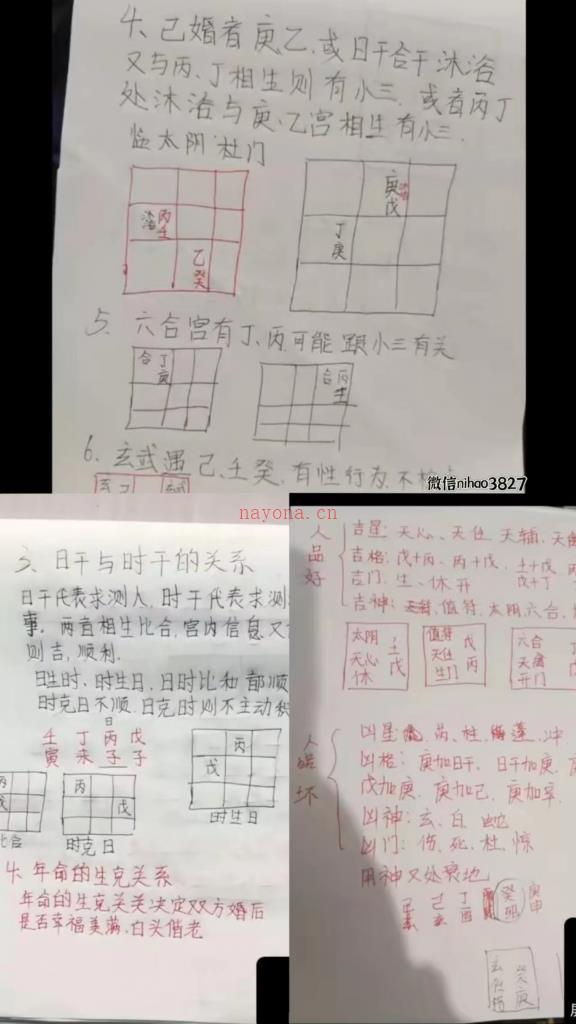 4、已婚者庚、乙、或日干合干沐浴
又与丙、丁相生则有小三、或者丙丁
处沐浴与庚、乙宫相生有小三、
临太阴 杜门
沐浴 丙壬
乙癸
庚戊 沐浴
丁庚
5、六合宫有丁、丙可能跟小三有关
合 丁庚
合 丙壬
6、玄武遇己、壬癸，有性行为不检
玄 己
微信nihao3827
nayona.cn
3、日干与时干的关系
日干代表求测人，时干代表求测
事，两者相生比合，宫内信息又
则吉，顺利。
日生时、时生日、日时比和都顺
时克日不顺，日克时则不主动积
日
壬 丁 丙 戊
寅 未 子 子
丙
戊
比合
丙
戊
时克日
丙
戊
时生日
4、年命的生克关系
年命的生克关关决定双方婚后
是否幸福美满，白头偕老
人品好
吉星：天心、天任、天辅、天禽
吉格：戊+丙、丙+戊、壬+戊
戊+丁
吉门：生、休开
吉神：值符、太阴、六合、
太阴 壬
天心 戊
休
值符 戊
天任 丙
生门
六合 丁
天禽 戊
开门
人坏
凶星 芮、柱、蓬、冲
凶格：庚加日干、日干加庚、
戊加庚、庚加己、庚加辛、
凶神：玄、白、蛇
凶门：伤、死、杜、惊
用神又处衰地
己 己 丁 癸 庚
亥 酉 申
玄 癸
庚